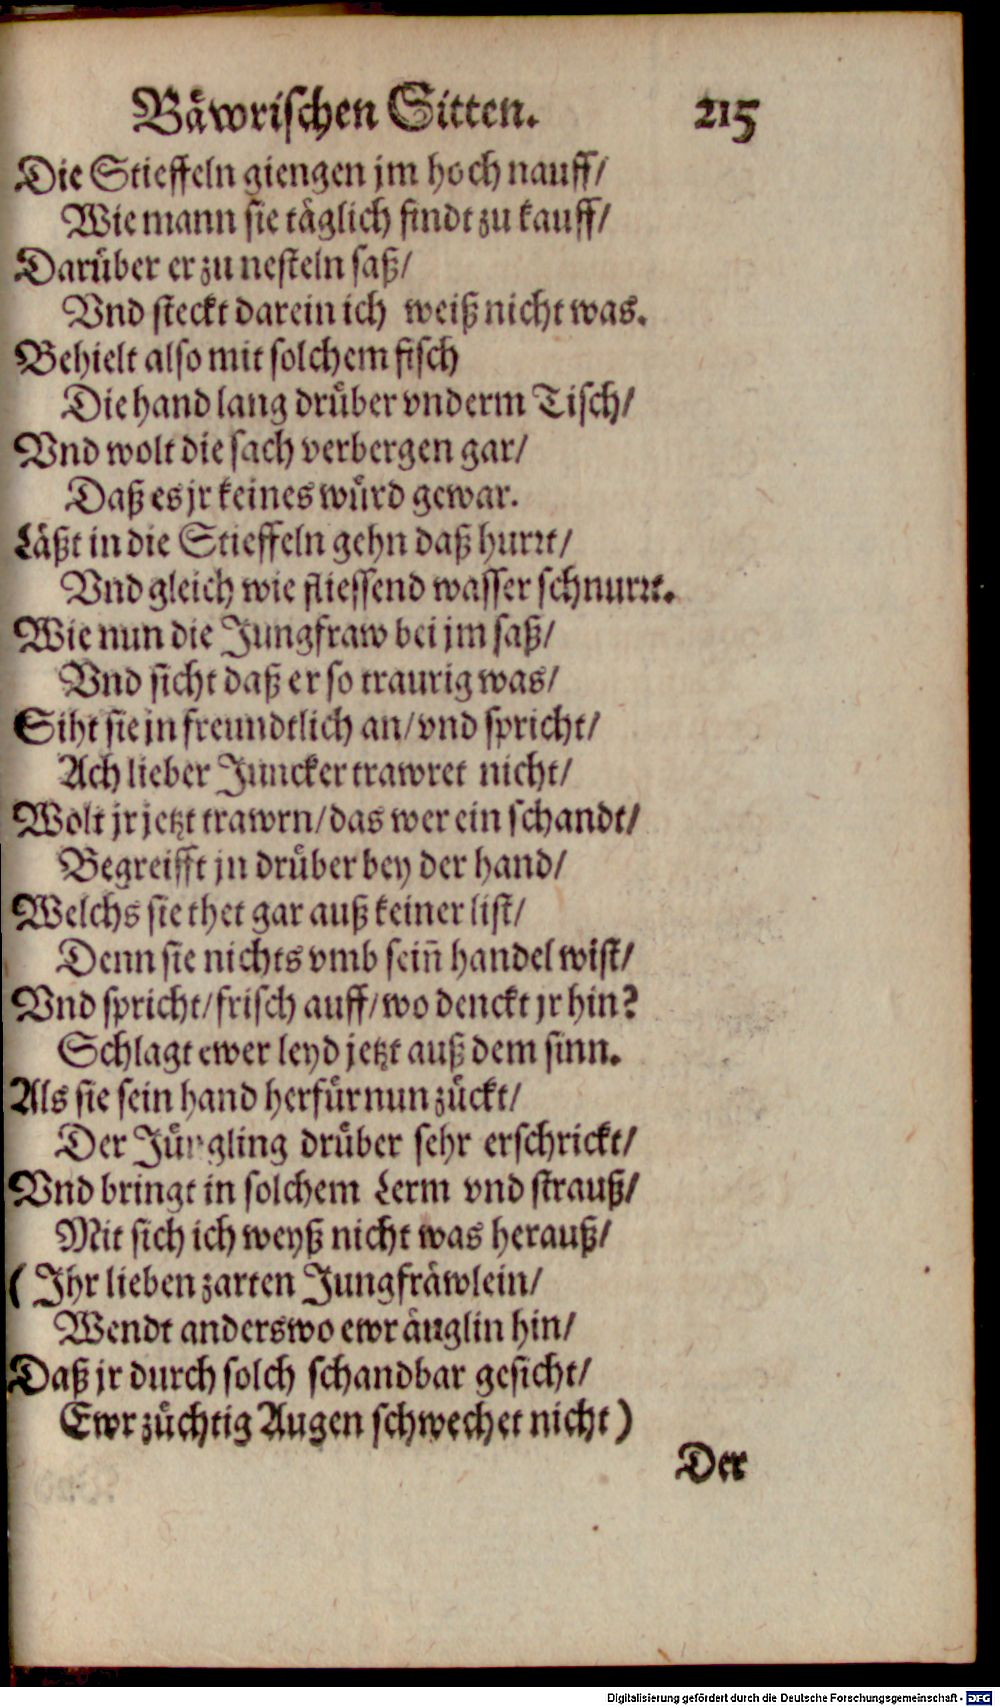 Bäwrischen Sitten. 215
Die Stieffeln giengen jm hoch nauff/
Wie mann sie täglich findt zu kauff/
Darüber er zu nesteln saß/
Vnd steckt darein ich weiß nicht was.
Behielt also mit solchem fisch
Die hand lang drüber vnderm Tisch/
Vnd wolt die sach verbergen gar/
Daß es jr keines würd gewar.
Läßt in die Stieffeln gehn daß hurrt/
Vnd gleich wie fliessend wasser schnurrt.
Wie nun die Jungfraw bei jm saß/
Vnd sicht daß er so traurig was/
Siht sie jn freundtlich an/ vnd spricht/
Ach lieber Juncker trawret nicht/
Wolt jr jetzt trawrn/ das wer ein schandt/
Begreifft jn drüber bey der hand/
Welchs sie thet gar auß keiner list/
Denn sie nichts vmb sein̄ handel wist/
Vnd spricht/ frisch auff/ wo denckt jr hin?
Schlagt ewer leyd jetzt auß dem sinn.
Als sie sein hand herfür nun zückt/
Der Jüngling drüber sehr erschrickt/
Vnd bringt in solchem Lerm vnd strauß/
Mit sich ich weyß nicht was herauß/
(Ihr lieben zarten Jungfräwlein/
Wendt anderswo ewr äuglin hin/
Daß jr durch solch schandbar gesicht/
Ewr züchtig Augen schwechet nicht)
Der
Digitalisierung gefördert durch die Deutsche Forschungsgemeinschaft - DFG